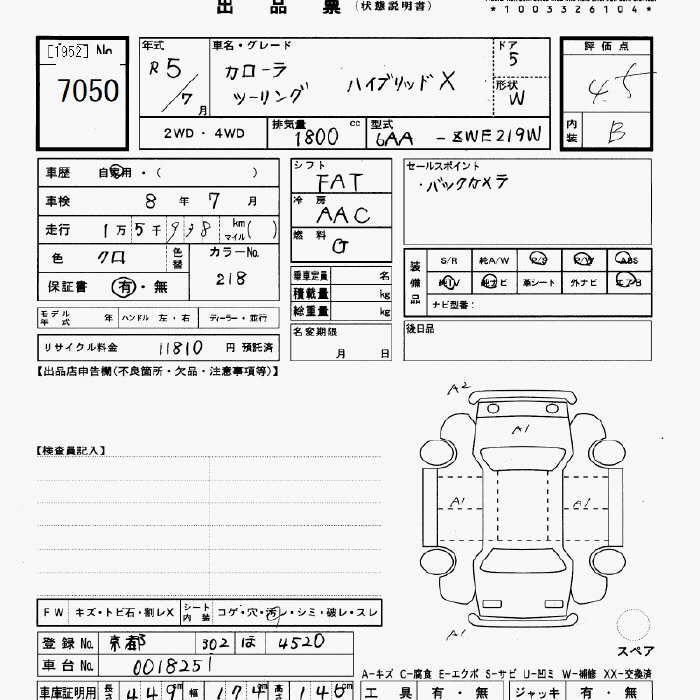 出品票 (状態説明書)
*1003326104*
[1952] No
7050
年式 R5/7月
車名・グレード
カローラ
ツーリング ハイブリッドX
ドア 5
形状 W
評価点 4.5
内装 B
2WD・4WD
排気量 1800 cc
型式 6AA - ZWE219W
車歴 自家用・( )
車検 8年7月
走行 1万5千998 km マイル( )
色 クロ
色替
カラーNo. 218
保証書 有・無
モデル年式 年 ハンドル 左・右 ディーラー・並行
リサイクル料金 11810 円 預託済
シフト FAT
冷房 AAC
燃料 G
乗車定員 名
積載量 kg
総重量 kg
名変期限
月 日
セールスポイント
・バックカメラ
装備品
S/R 純A/W P/S P/W ABS
純TV 純ナビ 革シート 外ナビ エアB
ナビ型番:
後日品
【出品店申告欄(不良箇所・欠品・注意事項等)】
【検査員記入】
A2
A1
A1
A1
A1
スペア
FW キズ・トビ石・割レX シート内装 コゲ・穴・汚レ・シミ・破レ・スレ
登録No. 京都 302 ほ 4520
車台No. 0018251
車庫証明用 長さ 449cm 幅 174cm 高さ 146cm
A-キズ C-腐食 E-エクボ S-サビ U-凹ミ W-補修 XX-交換済
工具 有・無 ジャッキ 有・無